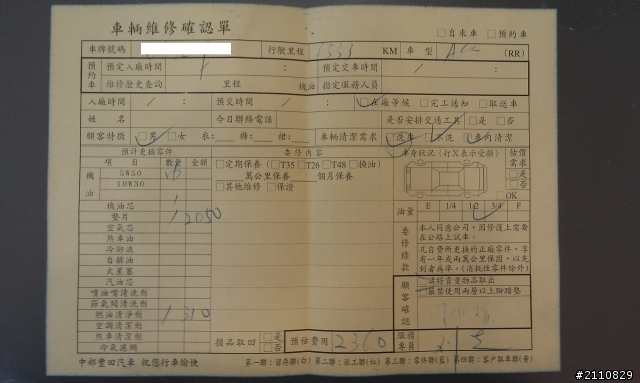 車輛維修確認單
□自來車 □預約車
車牌號碼 行駛里程 1553 KM 車型 (RR)
預約車 預定入廠時間 / : 預定交車時間 / :
維修歷史查詢 里程 機油 指定服務人員
入廠時間 / : 預交時間 / : □在廠等候 □完工通知 □取送車
姓名 今日聯絡電話 是否安排交通工具 □是 □否
顧客特徵 □男 □女 衣: 褲: 裙: 車輛清潔需求 □洗車 □不洗 □車內清潔
預計更換零件 委修內容 車身狀況(打X表示受損) 估價需求
項目 數量 金額 □定期保養(□T35 □T26 □T48 □換油) □是
機油 5W50 萬公里保養 個月保養 □否
10W30 □其他維修 □保證
機油芯 □OK
墊片 2050 油量 E 1/4 1/2 3/4 F
空氣芯
煞車油
冷卻液
自排油
火星塞
汽油芯
噴油嘴清洗劑
節氣閥清洗劑
燃油清淨劑 1 310
空調清潔劑
煞車清潔劑
冷氣濾網
委修條款 本人同意公司,因修護上需要在公路上試車。
凡自費所更換的正廠零件,享有一年或兩萬公里保固,以先到者為準。(消耗性零件除外)
顧客確認 □請將貴重物品取出
□嚴禁使用兩層以上腳踏墊
損品取回 □是 □否 預估費用 2360 服務專員
中部豐田汽車 祝您行車愉快 第一聯:留存聯(白) 第二聯:派工聯(紅) 第三聯:零件聯(藍) 第四聯:客戶取車聯(黃)
#2110829